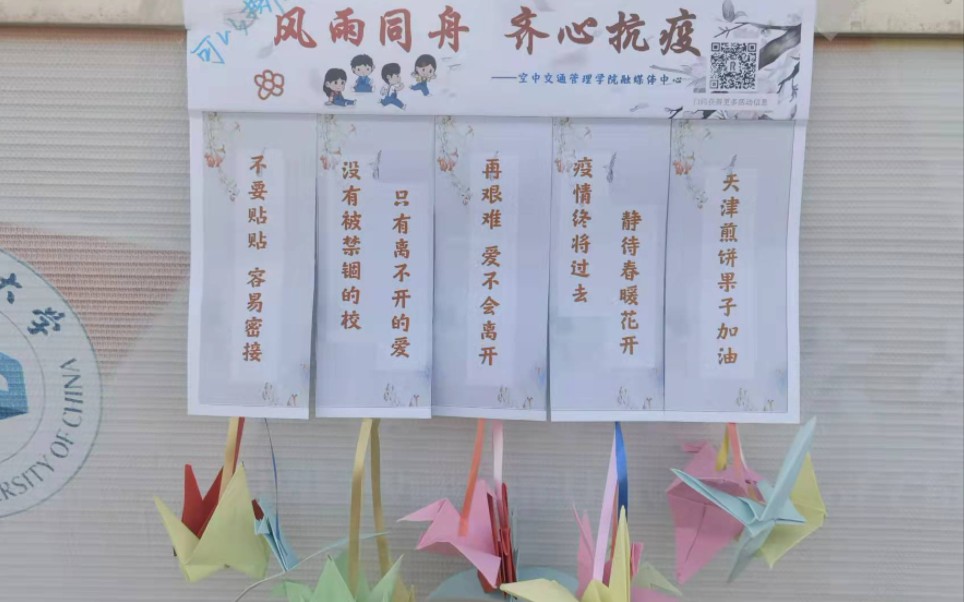 可以撕
风雨同舟 齐心抗疫
——空中交通管理学院融媒体中心
扫码获取更多活动信息
不要贴贴 容易密接
没有被禁锢的校
只有离不开的爱
再艰难 爱不会离开
疫情终将过去
静待春暖花开
天津煎饼果子加油
大学
ERSITY OF CHINA